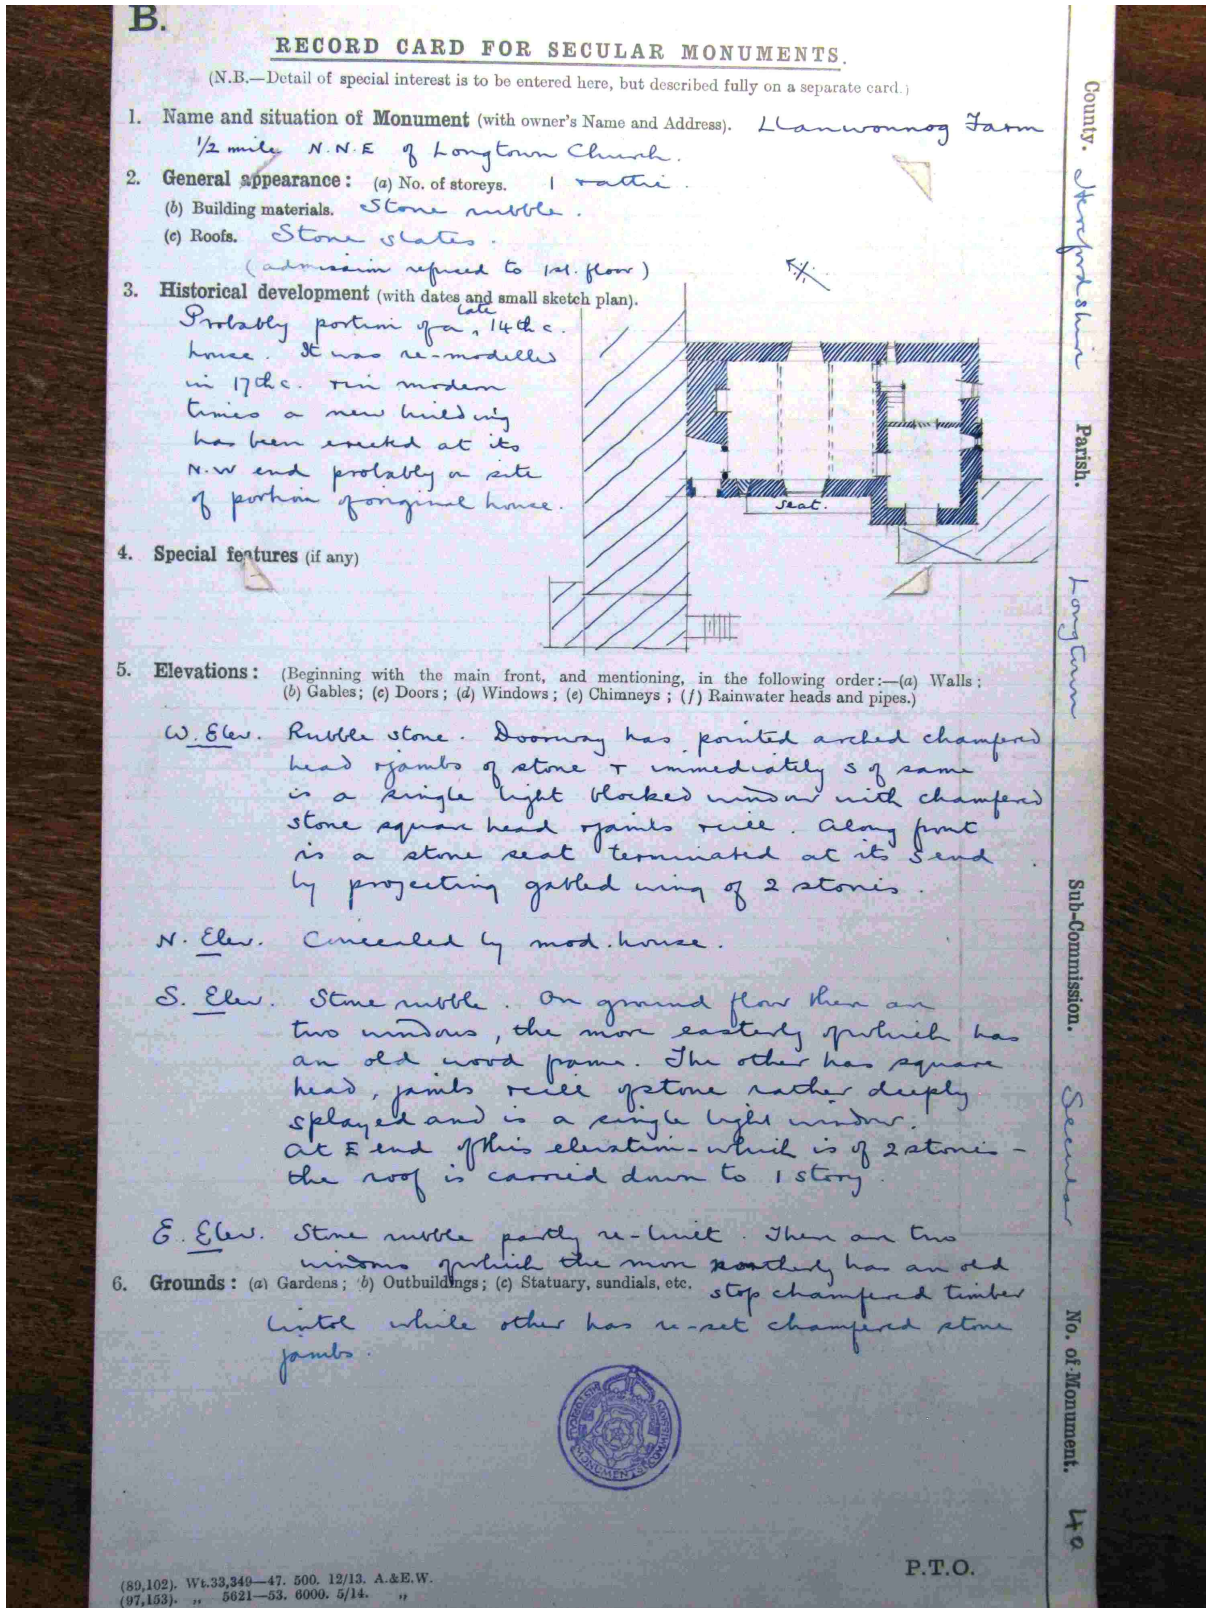 B.
RECORD CARD FOR SECULAR MONUMENTS.
(N.B.—Detail of special interest is to be entered here, but described fully on a separate card.)
1. Name and situation of Monument (with owner's Name and Address). Llanwonnog Farm
1/2 mile N.N.E of Longtown Church.
2. General appearance: (a) No. of storeys. 1 + attic.
(b) Building materials. Stone rubble.
(c) Roofs. Stone slates.
(admission refused to 1st. floor)
3. Historical development (with dates and small sketch plan).
late
Probably portion of a 14th c.
house. It was re-modelled
in 17th c. + in modern
times a new building
has been erected at its
N.W end probably on site
of portion of original house.
Seat.
4. Special features (if any)
5. Elevations: (Beginning with the main front, and mentioning, in the following order:—(a) Walls;
(b) Gables; (c) Doors; (d) Windows; (e) Chimneys; (f) Rainwater heads and pipes.)
W. Elev. Rubble stone. Doorway has pointed arched chamfered
head + jambs of stone + immediately S of same
is a single light blocked window with chamfered
stone square head + jambs + cill. Along front
is a stone seat terminated at its S end
by projecting gabled wing of 2 stories.
N. Elev. Concealed by mod. house.
S. Elev. Stone rubble. On ground floor there are
two windows, the more easterly of which has
an old wood frame. The other has square
head, jambs + cill of stone rather deeply
splayed and is a single light window.
At E end of this elevation - which is of 2 stories -
the roof is carried down to 1 story.
E. Elev. Stone rubble partly re-built. There are two
windows of which the more northerly has an old
6. Grounds: (a) Gardens; (b) Outbuildings; (c) Statuary, sundials, etc.
stop chamfered timber
lintol while other has re-set chamfered stone
jambs.
HISTORICAL MONUMENTS COMMISSION
P.T.O.
(89,102). Wt.33,349—47. 500. 12/13. A.&E.W.
(97,153). „ 5621—53. 6000. 5/14. „
County. Herefordshire
Parish. Longtown
Sub-Commission. Secular
No. of Monument. 40